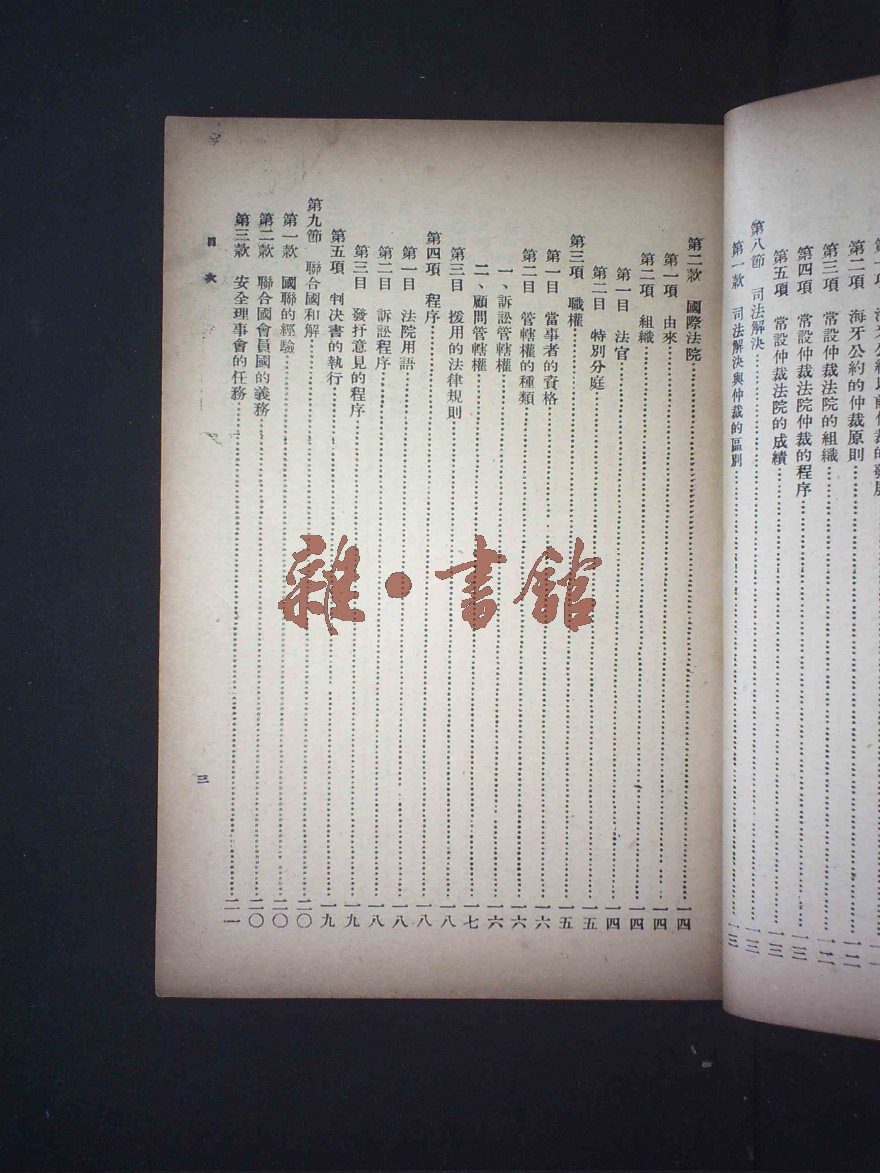 海牙公約以前仲裁的發展
第二項　海牙公約的仲裁原則……一二
第三項　常設仲裁法院的組織……一二
第四項　常設仲裁法院仲裁的程序……一三
第五項　常設仲裁法院的成績……一三
第八節　司法解決……一三
第一款　司法解決與仲裁的區別……一三
第二款　國際法院……一四
第一項　由來……一四
第二項　組織……一四
第一目　法官……一四
第二目　特別分庭……一五
第三項　職權……一五
第一目　當事者的資格……一六
第二目　管轄權的種類……一六
一、訴訟管轄權……一六
二、顧問管轄權……一七
第三目　援用的法律規則……一八
第四項　程序……一八
第一目　法院用語……一八
第二目　訴訟程序……一八
第三目　發抒意見的程序……一九
第五項　判決書的執行……一九
第九節　聯合國和解……二〇
第一款　國聯的經驗……二〇
第二款　聯合國會員國的義務……二〇
第三款　安全理事會的任務……二一
目次
三
雜·書館